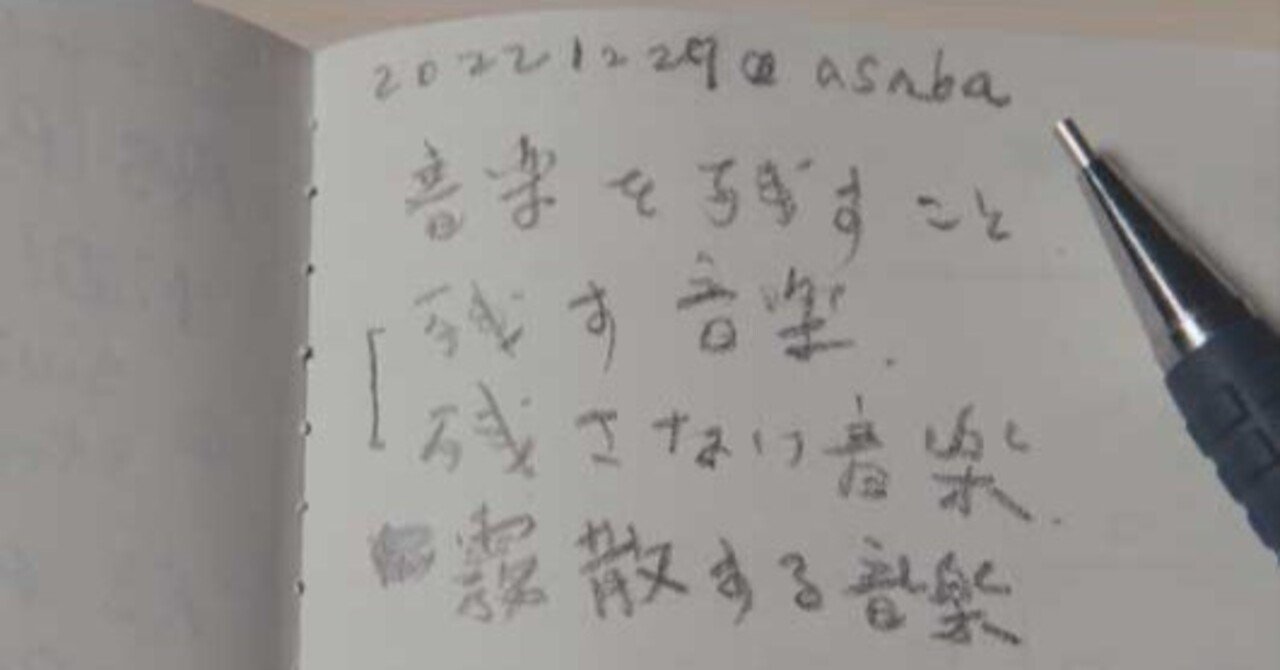 20221229@asaba
音楽を残すこと
残す音楽.
残さない音楽.
霧散する音楽